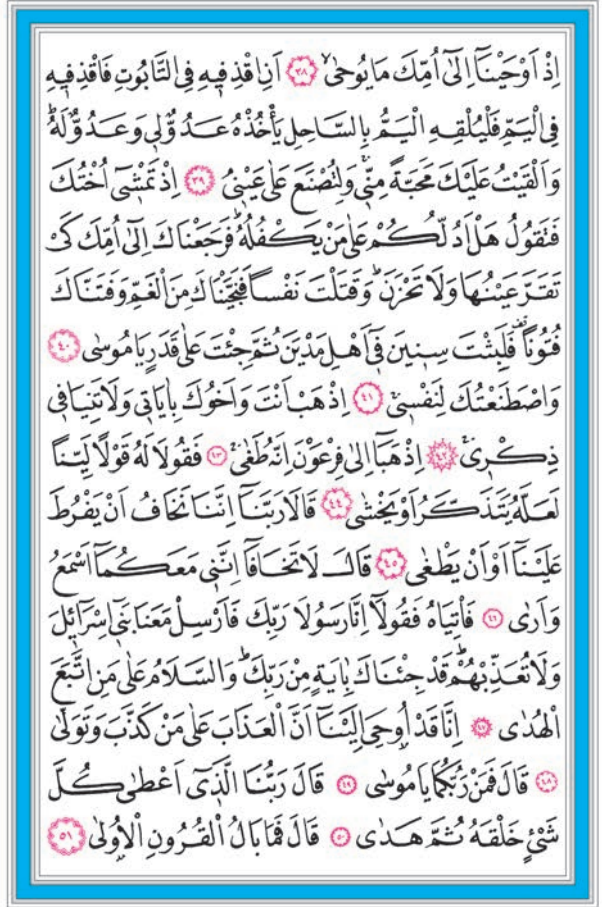 اِذْ اَوْحَيْنَٓا اِلٰٓى اُمِّكَ مَا يُوحٰىۙ ﴿٣٨﴾ اَنِ اقْذِفٖيهِ فِي التَّابُوتِ فَاقْذِفٖيهِ
فِي الْيَمِّ فَلْيُلْقِهِ الْيَمُّ بِالسَّاحِلِ يَأْخُذْهُ عَدُوٌّ لٖي وَعَدُوٌّ لَهُؕ
وَاَلْقَيْتُ عَلَيْكَ مَحَبَّةً مِنّٖيۚ وَلِتُصْنَعَ عَلٰى عَيْنٖيۘ ﴿٣٩﴾ اِذْ تَمْشٖٓي اُخْتُكَ
فَتَقُولُ هَلْ اَدُلُّكُمْ عَلٰى مَنْ يَكْفُلُهُؕ فَرَجَعْنَاكَ اِلٰٓى اُمِّكَ كَيْ
تَقَرَّ عَيْنُهَا وَلَا تَحْزَنَؕ وَقَتَلْتَ نَفْساً فَنَجَّيْنَاكَ مِنَ الْغَمِّ وَفَتَنَّاكَ
فُتُوناً فَلَبِثْتَ سِنٖينَ فٖٓي اَهْلِ مَدْيَنَ ثُمَّ جِئْتَ عَلٰى قَدَرٍ يَا مُوسٰى ﴿٤٠﴾
وَاصْطَنَعْتُكَ لِنَفْسٖيۚ ﴿٤١﴾ اِذْهَبْ اَنْتَ وَاَخُوكَ بِاٰيَاتٖي وَلَا تَنِيَا فٖي
ذِكْرٖيۚ ﴿٤٢﴾ اِذْهَبَٓا اِلٰى فِرْعَوْنَ اِنَّهُ طَغٰىۚ ﴿٤٣﴾ فَقُولَا لَهُ قَوْلاً لَيِّناً
لَعَلَّهُ يَتَذَكَّرُ اَوْ يَخْشٰى ﴿٤٤﴾ قَالَا رَبَّنَٓا اِنَّنَا نَخَافُ اَنْ يَفْرُطَ
عَلَيْنَٓا اَوْ اَنْ يَطْغٰى ﴿٤٥﴾ قَالَ لَا تَخَافَٓا اِنَّنٖي مَعَكُمَٓا اَسْمَعُ
وَاَرٰى ﴿٤٦﴾ فَأْتِيَاهُ فَقُولَٓا اِنَّا رَسُولَا رَبِّكَ فَاَرْسِلْ مَعَنَا بَنٖٓي اِسْرَٓائٖلَ
وَلَا تُعَذِّبْهُمْؕ قَدْ جِئْنَاكَ بِاٰيَةٍ مِنْ رَبِّكَؕ وَالسَّلَامُ عَلٰى مَنِ اتَّبَعَ
الْهُدٰى ﴿٤٧﴾ اِنَّا قَدْ اُو۫حِيَ اِلَيْنَٓا اَنَّ الْعَذَابَ عَلٰى مَنْ كَذَّبَ وَتَوَلّٰى
﴿٤٨﴾ قَالَ فَمَنْ رَبُّكُمَا يَا مُوسٰى ﴿٤٩﴾ قَالَ رَبُّنَا الَّذٖٓي اَعْطٰى كُلَّ
شَيْءٍ خَلْقَهُ ثُمَّ هَدٰى ﴿٥٠﴾ قَالَ فَمَا بَالُ الْقُرُونِ الْاُو۫لٰى ﴿٥١﴾